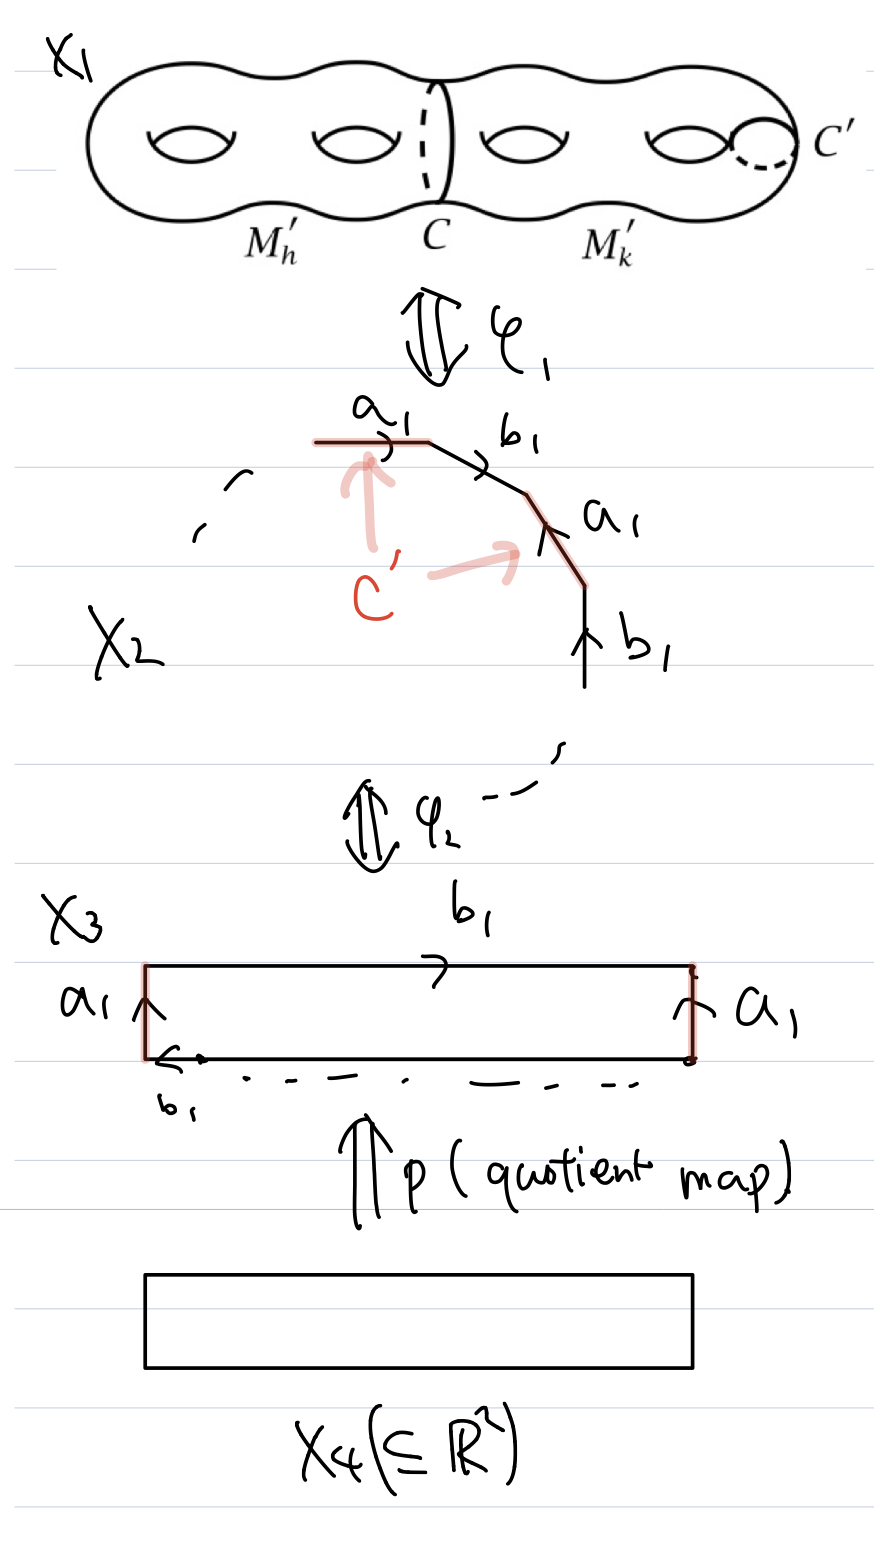 X₁
C′
M′ₕ C M′ₖ
φ₁
a₁
b₁
a₁
C′
X₂
b₁
φ₂
X₃
b₁
a₁
a₁
b₁
p (quotient map)
X₄(⊆ ℝ²)